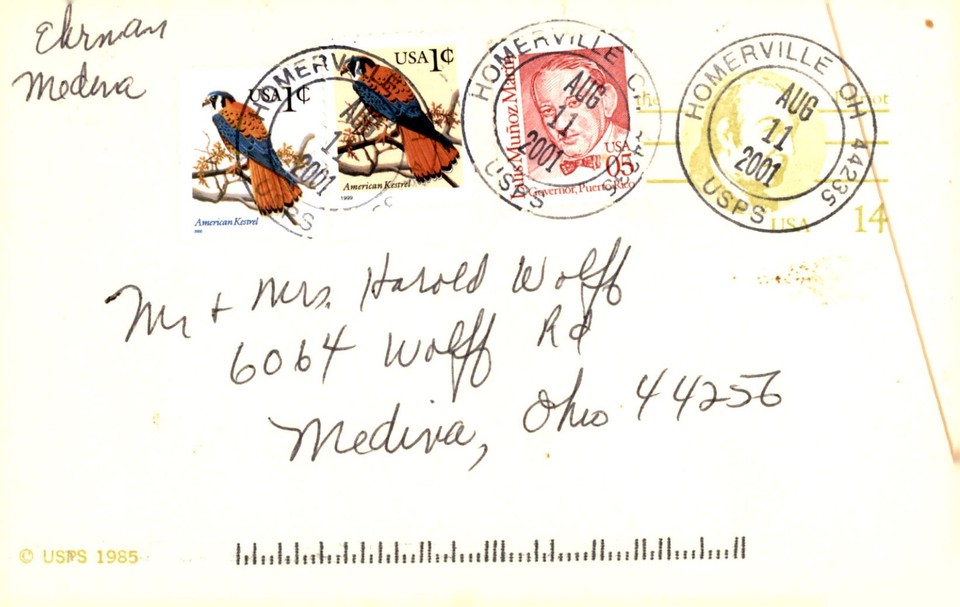 Ehrman
Medina
USA 1¢
American Kestrel
USA 1¢
American Kestrel
1999
Luis Muñoz Marín
USA
05
Governor, Puerto Rico
USA 14
HOMERVILLE
AUG
11
2001
HOMERVILLE
AUG
11
2001
USPS
HOMERVILLE OH 44235
AUG
11
2001
USPS
Mr + Mrs. Harold Wolff
6064 Wolff Rd
Medina, Ohio 44256
© USPS 1985